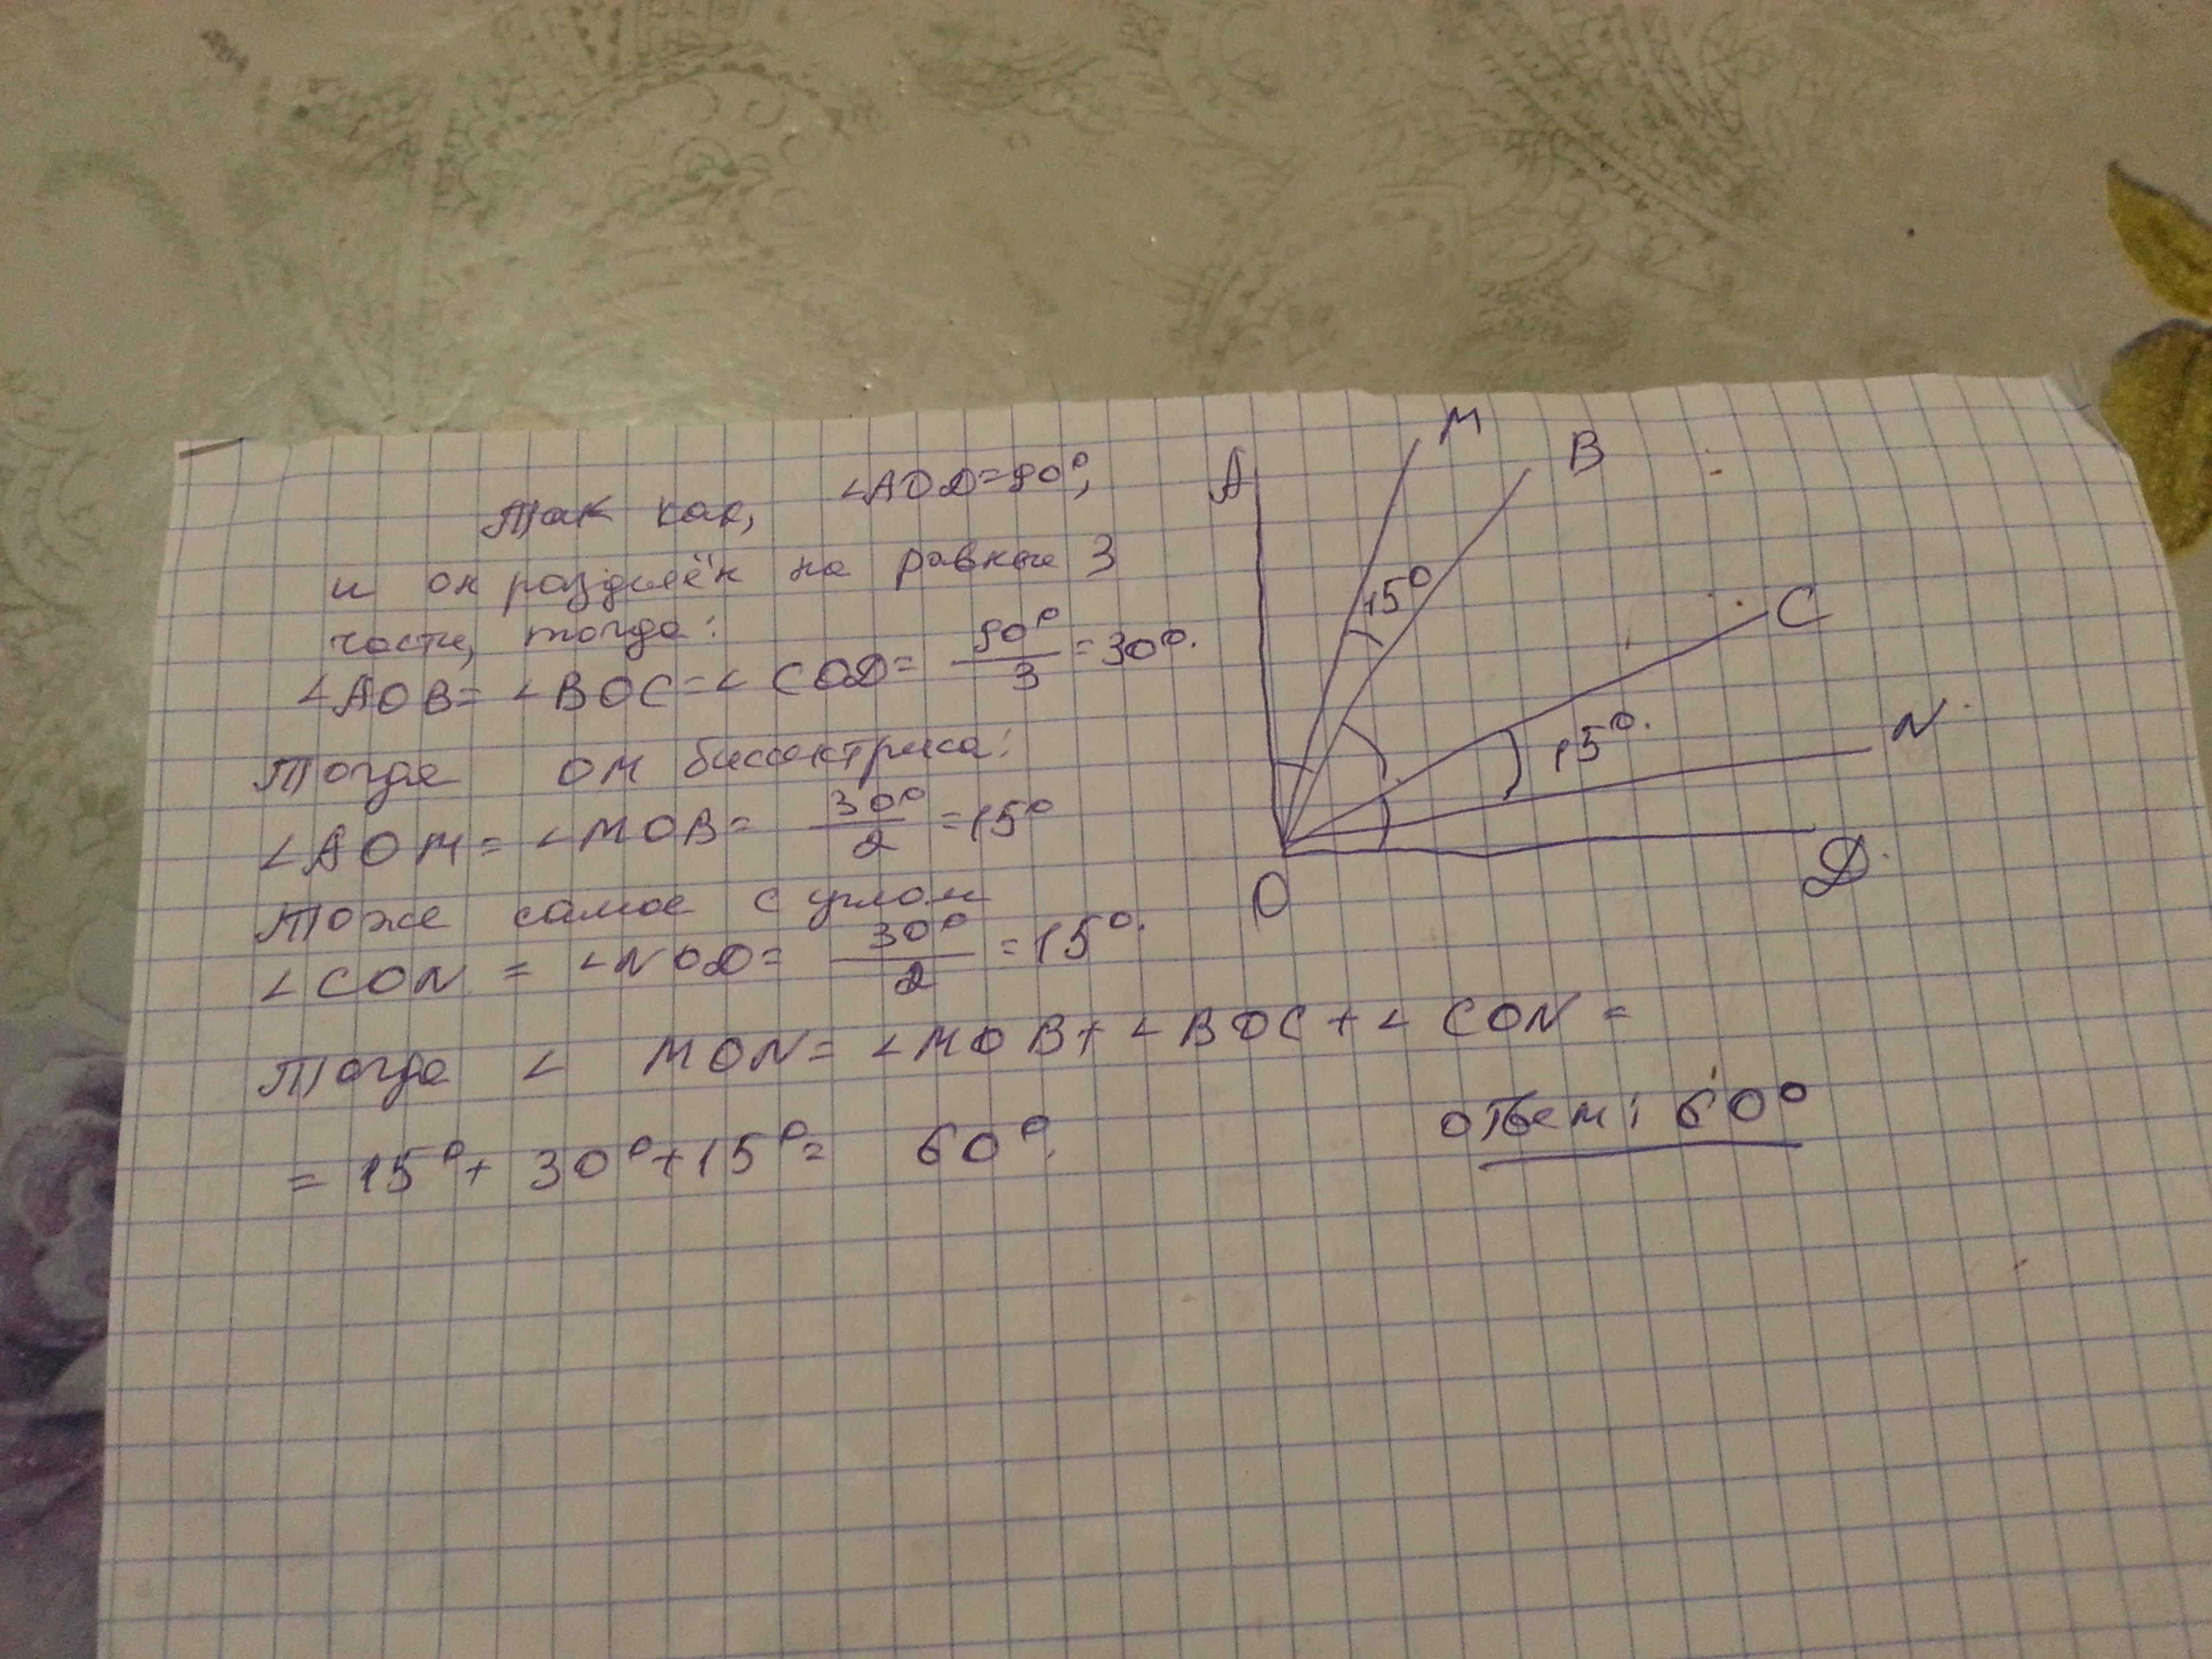 Так как, ∠AOD=90°,
и он разделён на равные 3
части, тогда:
∠AOB= ∠BOC=∠COD= 90°/3 =30°.
Тогда OM биссектриса:
∠AOM= ∠MOB= 30°/2 =15°
Тоже самое с углом
∠CON = ∠NOD= 30°/2 =15°.
Тогда ∠ MON= ∠MOB+ ∠BOC+∠ CON =
= 15°+ 30°+15°= 60°.
ответ: 60°
A
M
B
15°
C
15°.
N
O
D